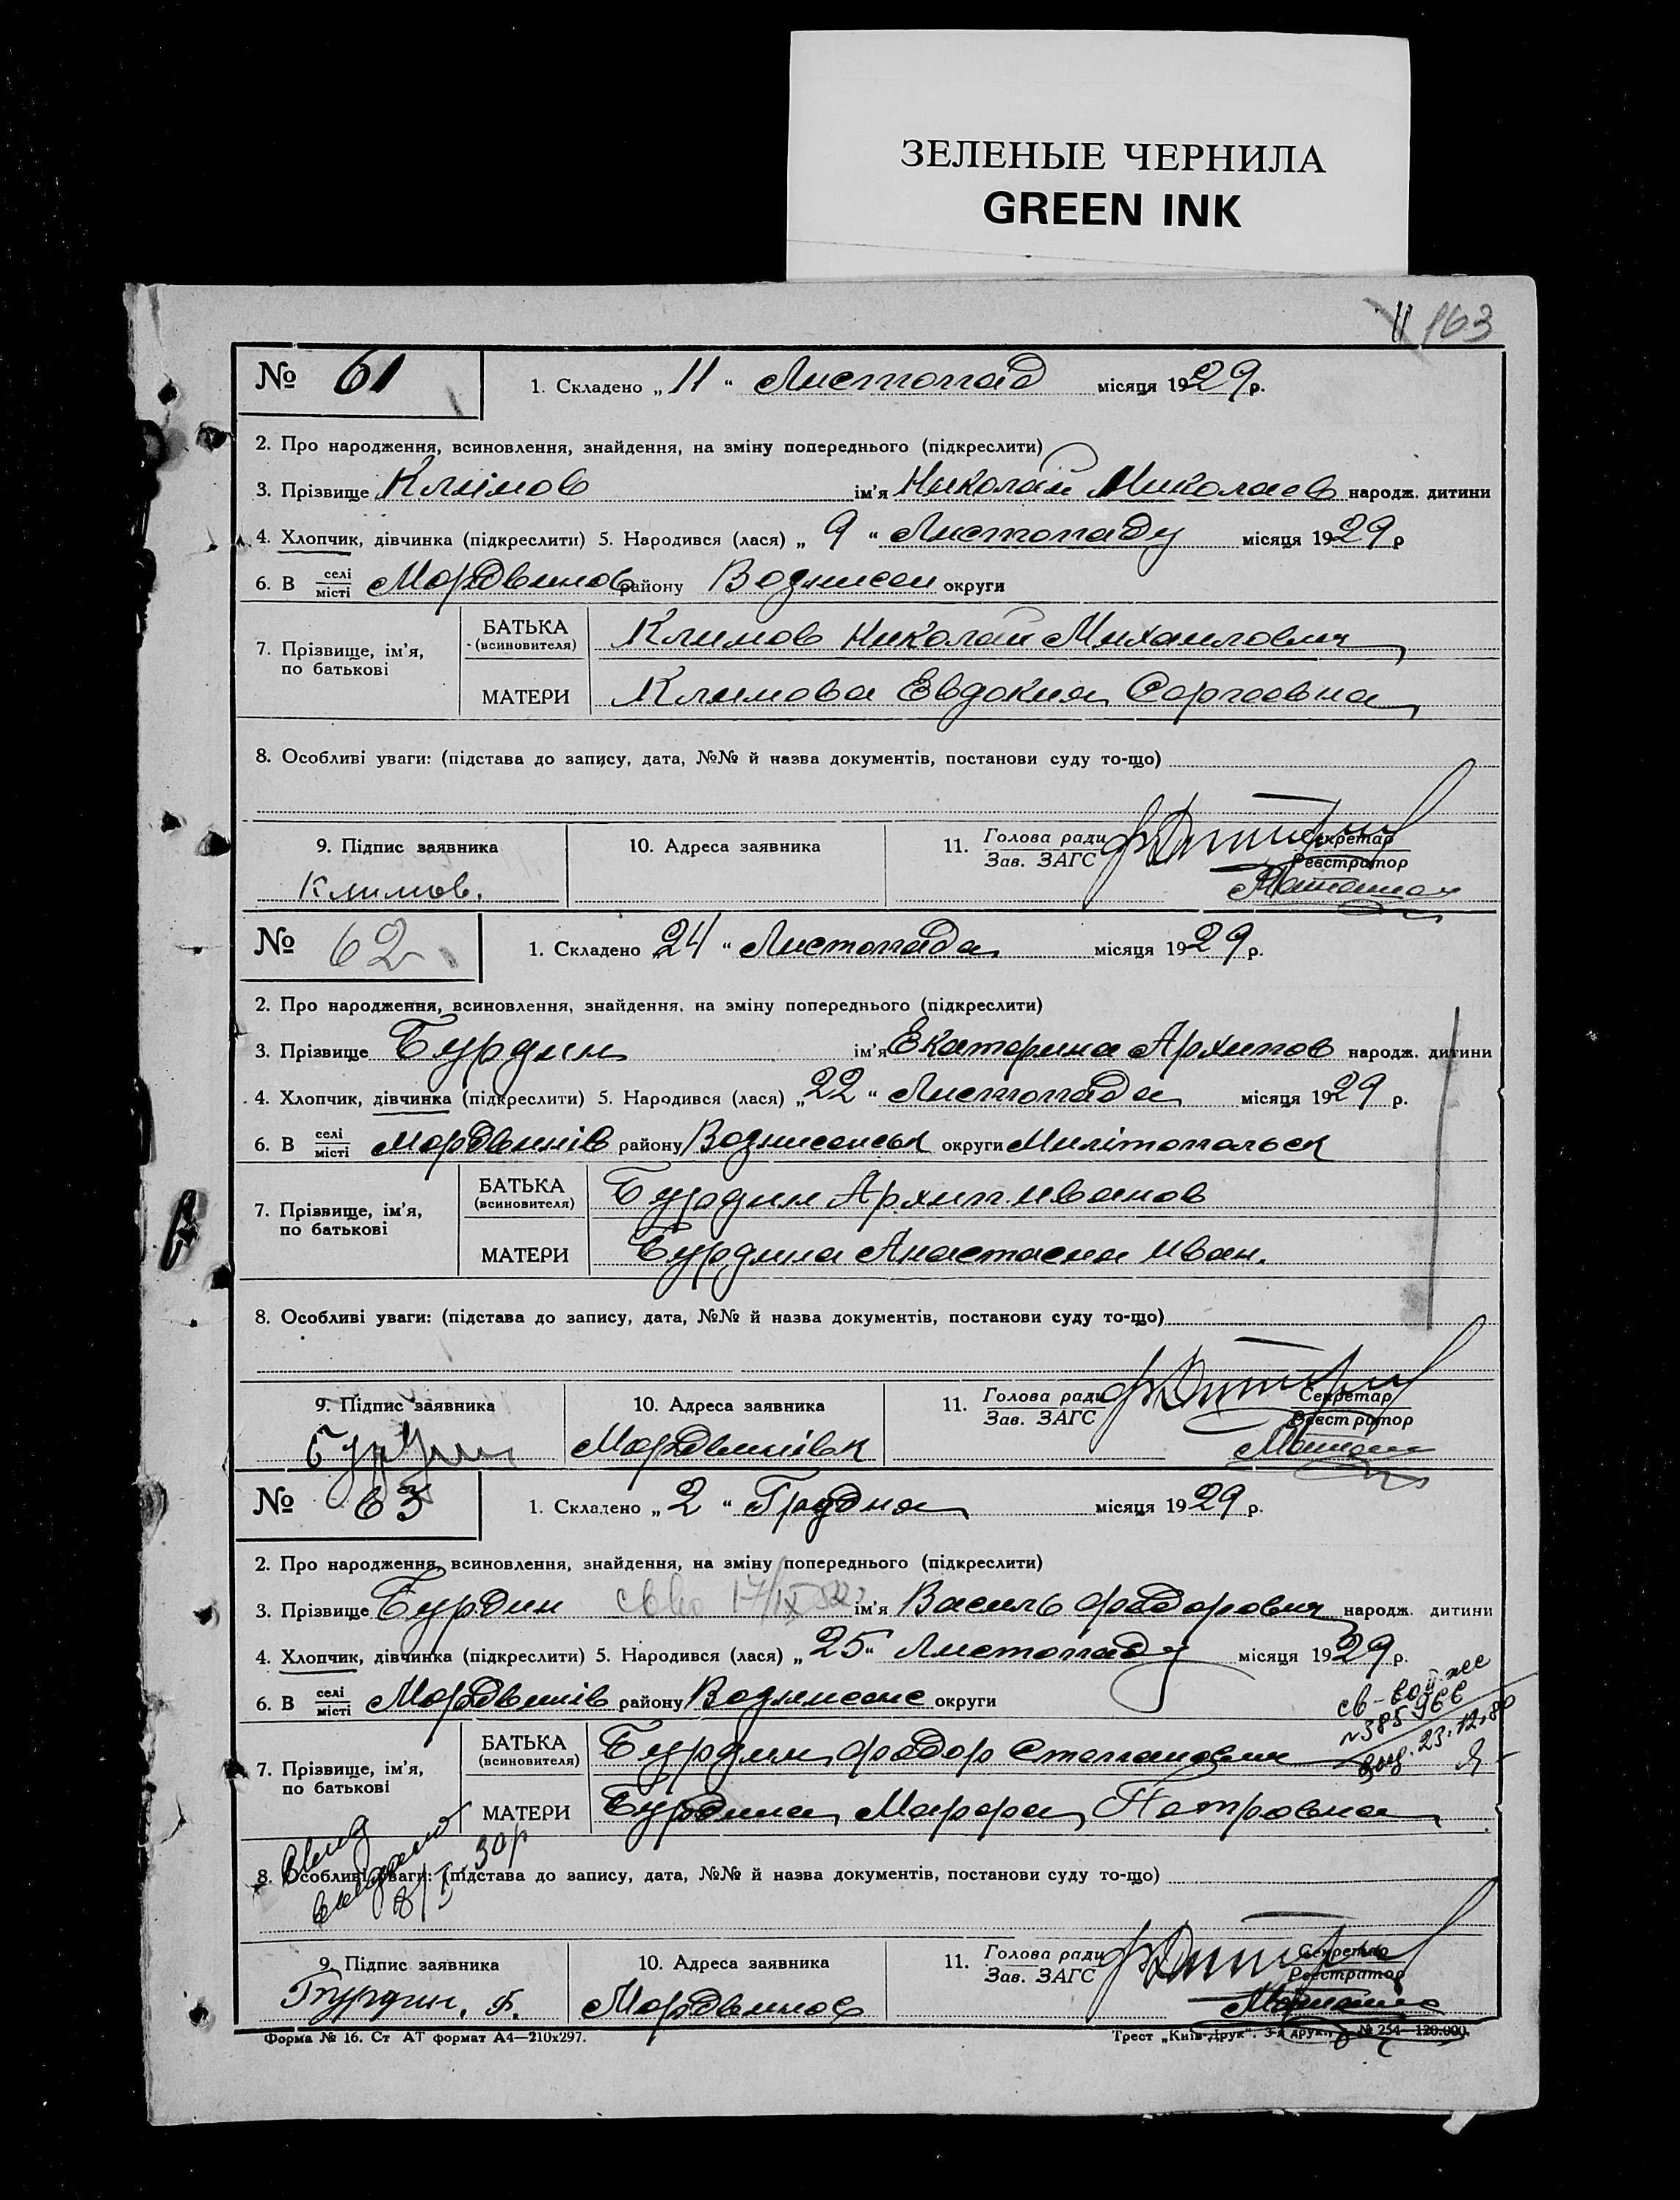 ЗЕЛЕНЫЕ ЧЕРНИЛА
GREEN INK
11 163
№ 61 1. Складено „ 11 “ Листопад місяця 1929 р.
2. Про народження, всиновлення, знайдення, на зміну попереднього (підкреслити)
3. Прізвище Клімов ім'я Николай Николаев народж. дитини
4. Хлопчик, дівчинка (підкреслити) 5. Народився (лася) „ 9 “ Листопаду місяця 1929 р
6. В селі місті Мордвинов району Вознисен округи
7. Прізвище, ім'я, по батькові
БАТЬКА (всиновителя) Климов Николай Михаилович
МАТЕРИ Климова Евдокия Сергеевна
8. Особливі уваги: (підстава до запису, дата, №№ й назва документів, постанови суду то-що)
9. Підпис заявника 10. Адреса заявника 11. Голова ради Зав. ЗАГС Секретар Реєстратор
Климов.
№ 62 1. Складено 24 “ Листопада місяця 1929 р.
2. Про народження, всиновлення, знайдення, на зміну попереднього (підкреслити)
3. Прізвище Бурдин ім'я Екатерина Архипов народж. дитини
4. Хлопчик, дівчинка (підкреслити) 5. Народився (лася) „ 22 “ Листопада місяця 1929 р.
6. В селі місті Мордвинів району Вознисенськ округи Милітопальск
7. Прізвище, ім'я, по батькові
БАТЬКА (всиновителя) Бурдин Архип Иванов
МАТЕРИ Бурдина Анастасия Иван.
8. Особливі уваги: (підстава до запису, дата, №№ й назва документів, постанови суду то-що)
9. Підпис заявника 10. Адреса заявника 11. Голова ради Зав. ЗАГС Секретар Реєстратор
Бурдин Мордвинівк
№ 63 1. Складено „ 2 “ Грудня місяця 1929 р.
2. Про народження, всиновлення, знайдення, на зміну попереднього (підкреслити)
3. Прізвище Бурдин ім'я Василь Федорович народж. дитини
4. Хлопчик, дівчинка (підкреслити) 5. Народився (лася) „ 25 “ Листопаду місяця 1929 р.
6. В селі місті Мордвинів району округи
23.12.80
7. Прізвище, ім'я, по батькові
БАТЬКА (всиновителя) Бурдин Федор Степанович
МАТЕРИ Бурдина Марфа Петровна
8. Особливі уваги: (підстава до запису, дата, №№ й назва документів, постанови суду то-що)
9. Підпис заявника 10. Адреса заявника 11. Голова ради Зав. ЗАГС Секретар Реєстратор
Бурдин. Ф. Мордвинов
Форма № 16. Ст АТ формат А4—210х297. Трест „Київ-Друк“. 3-я друк., № 254—120.000.